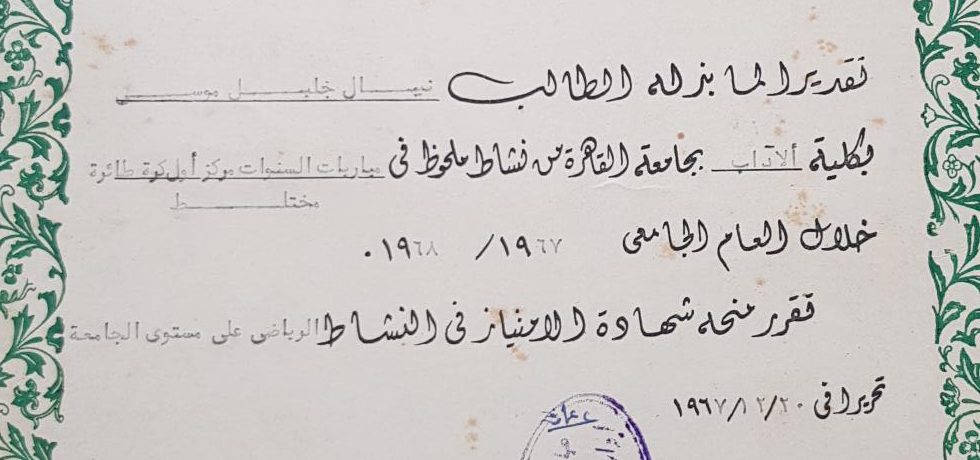 تقديرا لما بذله الطالب نيـــال خليـــل موســـى
بكلية ألآداب بجامعة القاهرة من نشاط ملحوظ فى مباريات السنوات مركز أول كرة طائرة
مختلـــط
خلال العام الجامعى ١٩٦٧ / ١٩٦٨ .
فقرر منحه شهادة الامتياز فى النشاط الرياضى على مستوى الجامعة
تحريرا فى ٢٠ / ١٢ / ١٩٦٧